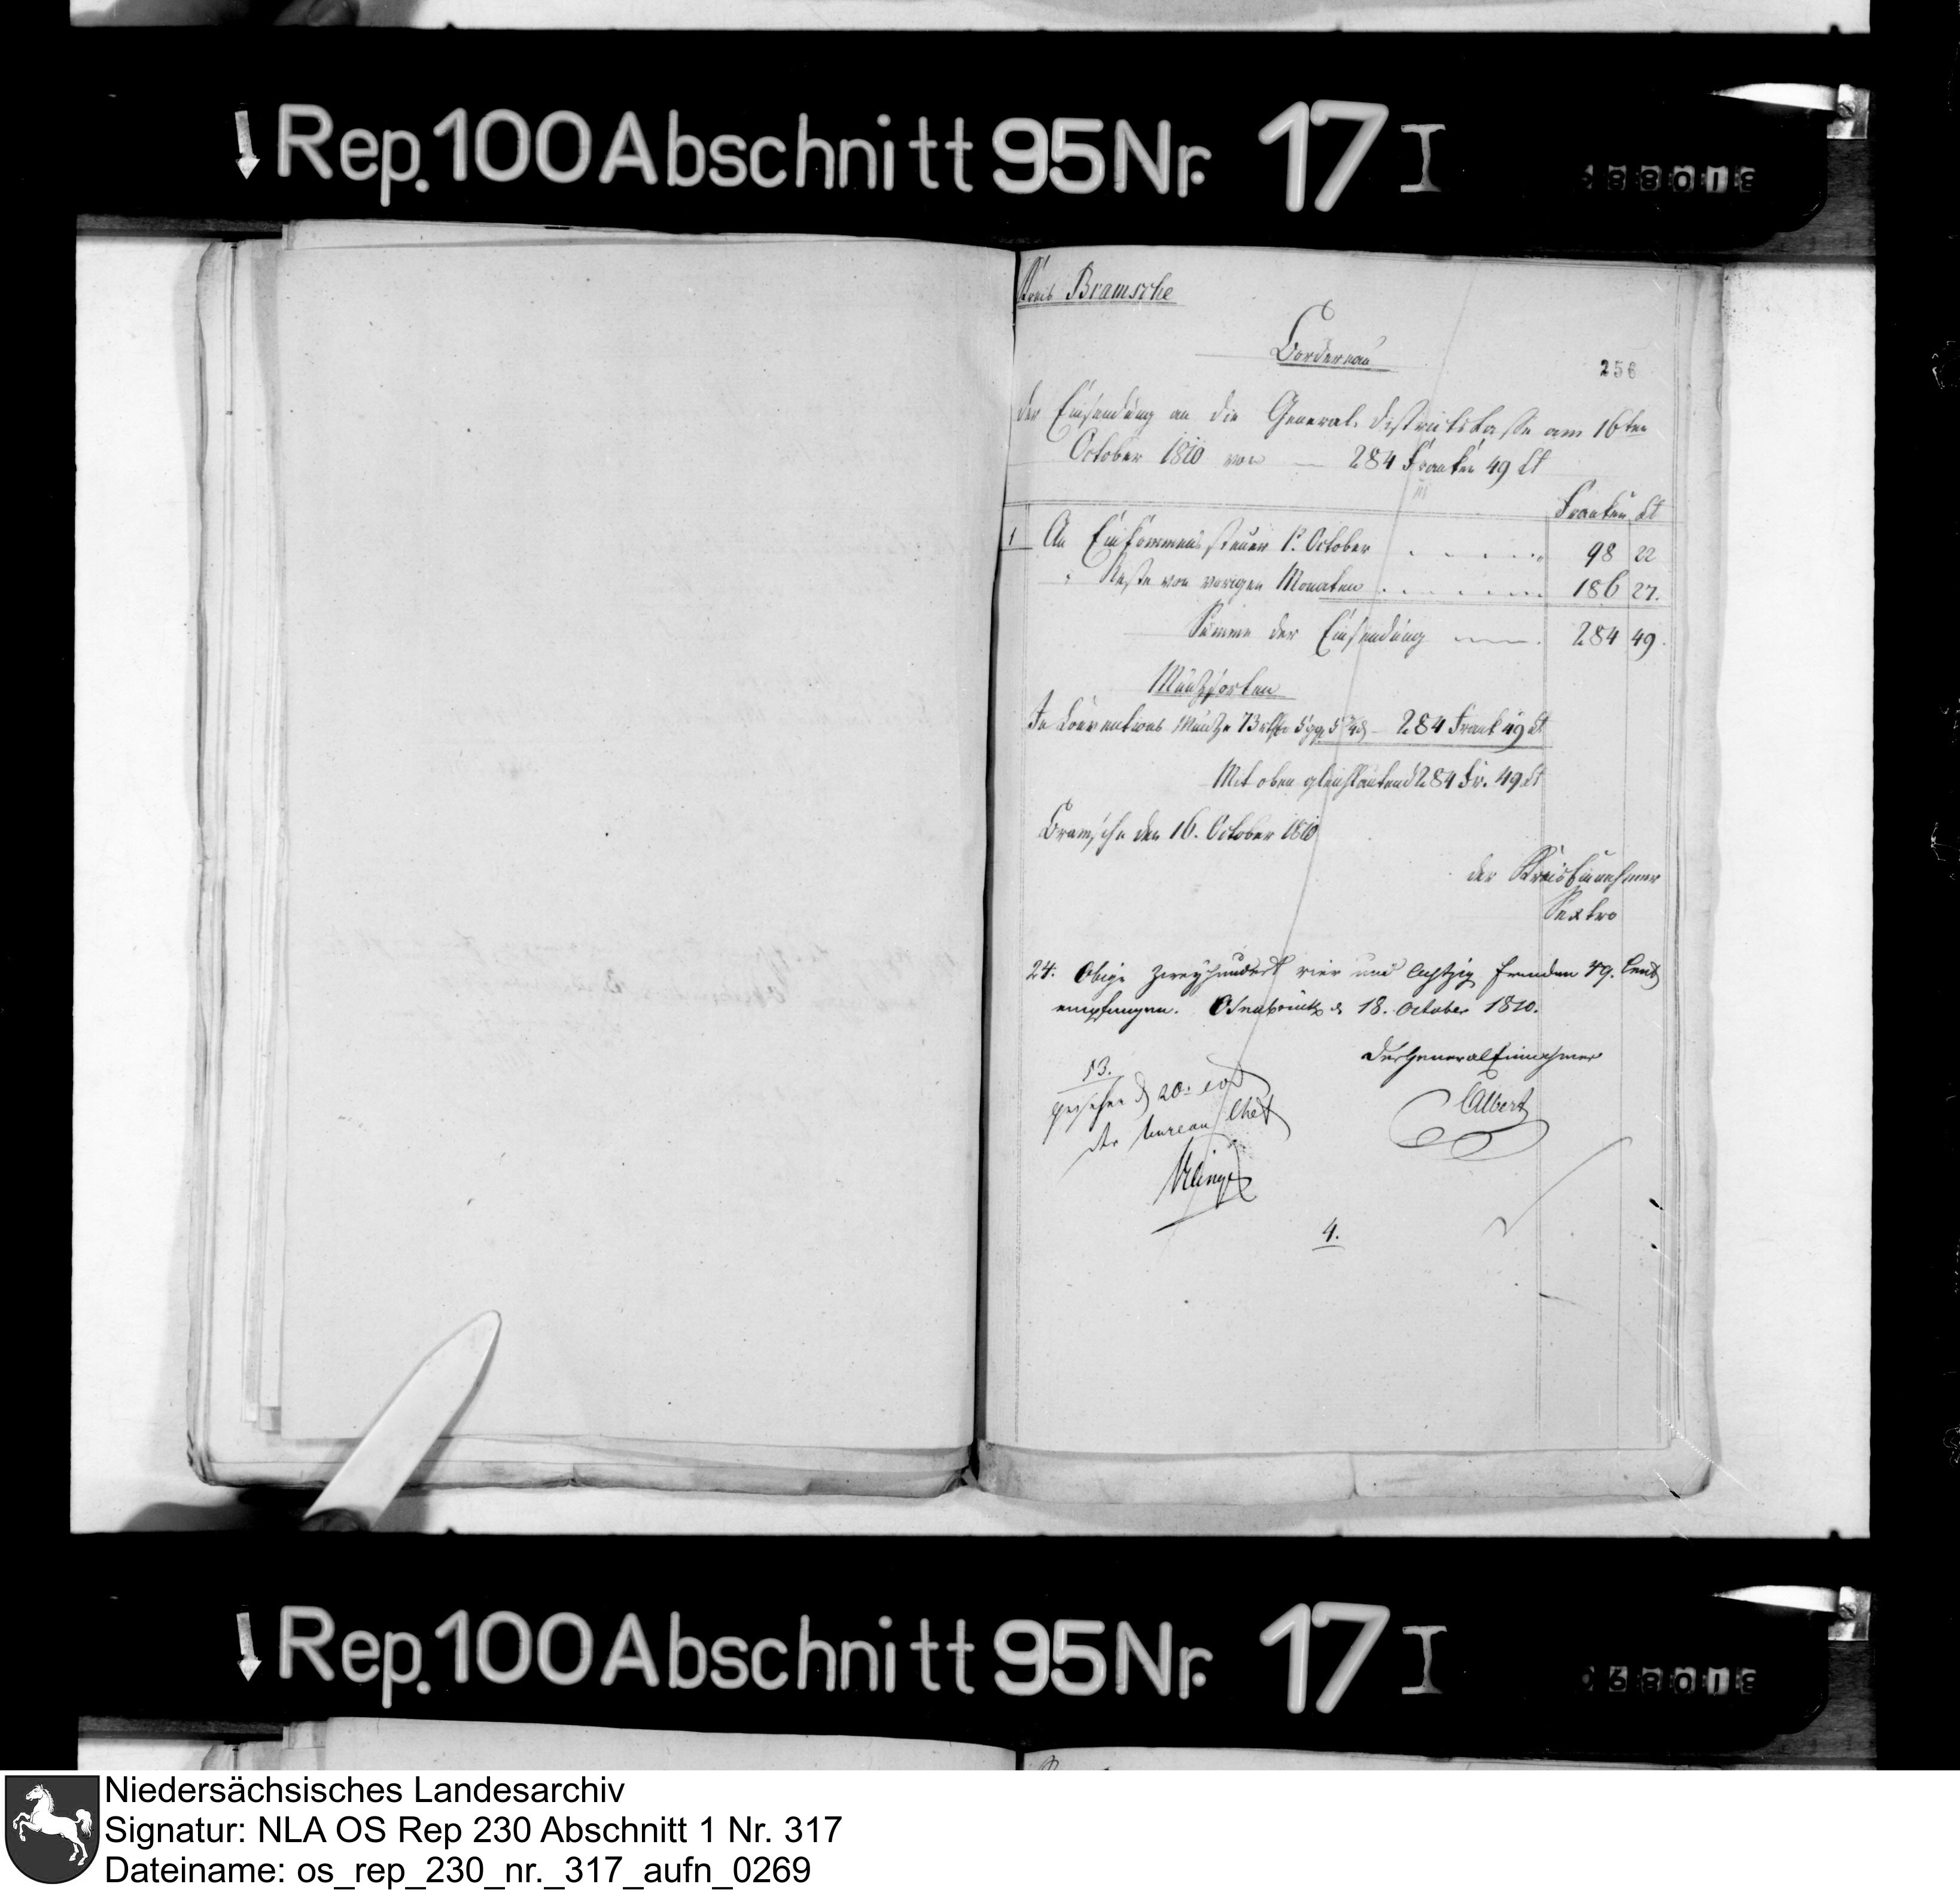 Rep. 100 Abschnitt 95 Nr. 17 I
Kreis Bramsche
Bordereau
256
der Einsendung an die General-Districtskasse am 16ten
October 1810 von — 284 Franken 49 Ct
Franken Ct
1 An Einkommensteuer p. October 98 22
" Reste von vorigen Monaten 186 27.
Summe der Einsendung 284 49.
Münzsorten
In Conventions Münze 73 rthlr 5 gg 284 Frank 49 Ct
Mit oben gleichlautend 284 Fr. 49 Ct
Bramsche den 16. October 1810
der Kreis Einnehmer
Sextro
24. Obige zweyhundert vier und Achtzig Franken 49. Cent
empfangen. Osnabrück d 18. October 1810.
Der General Einnehmer
Albert
53.
gesehen d 20.
der bureau Chef
4.
Rep. 100 Abschnitt 95 Nr. 17 I
Niedersächsisches Landesarchiv
Signatur: NLA OS Rep 230 Abschnitt 1 Nr. 317
Dateiname: os_rep_230_nr._317_aufn_0269